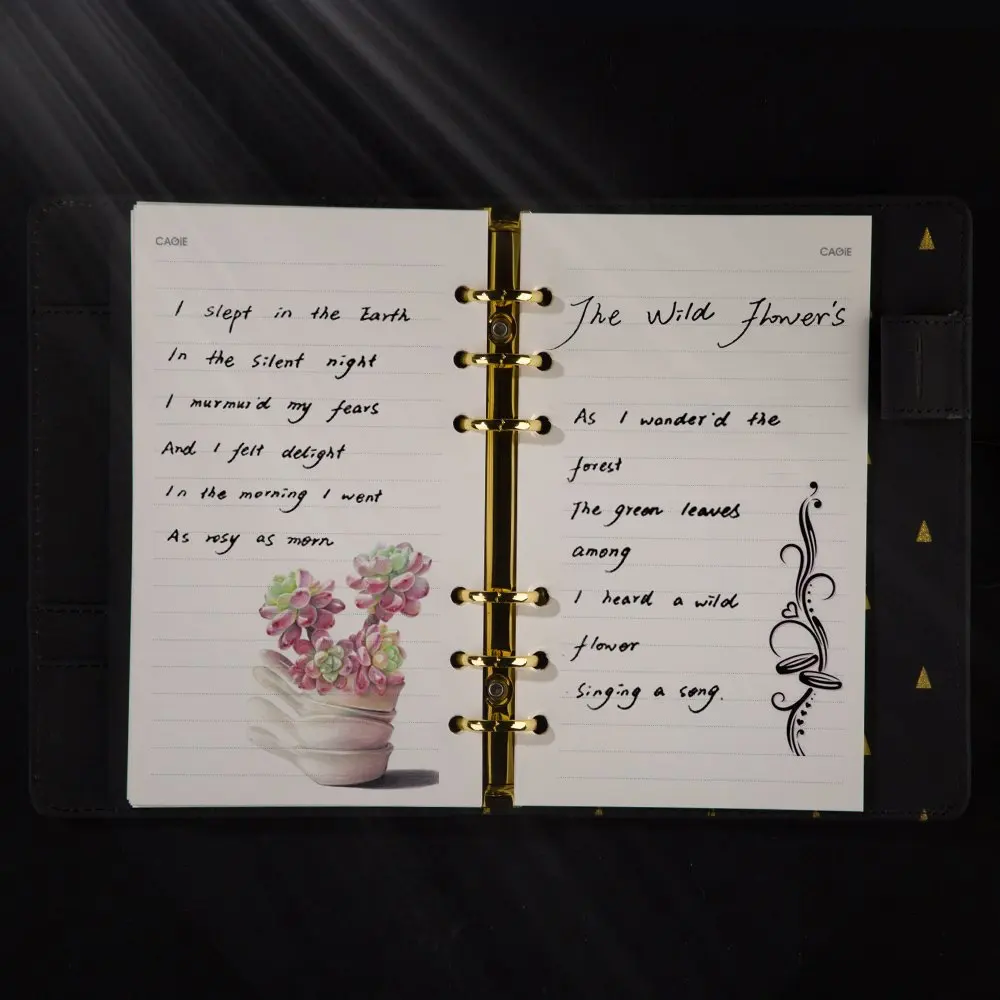 CAGIE
I slept in the Earth
In the silent night
I murmur'd my fears
And I felt delight
In the morning I went
As rosy as morn
CAGIE
The Wild Flower's
As I wander'd the
forest
The green leaves
among
I heard a wild
flower
Singing a song.